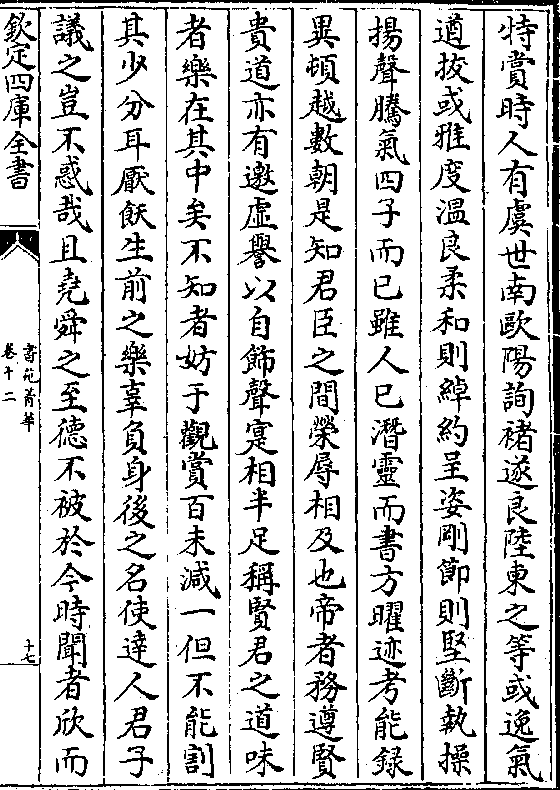 特賞時人有虞世南歐陽詢褚遂良陸東之等或逸氣
遒拔或雅度溫良柔和則綽約呈姿剛節則堅斷執操
揚聲騰氣四子而已雖人已潛靈而書方曜迹考能録
異頓越數朝是知君臣之間榮辱相及也帝者務遵賢
貴道亦有邀虛譽以自飾聲寔相半足稱賢君之道味
者樂在其中矣不知者妨于觀賞百未減一但不能割
其少分耳厭飫生前之樂辜負身後之名使達人君子
議之豈不惑哉且堯舜之至德不被於今時聞者欣而
欽定四庫全書
書苑菁華
卷十二
十七